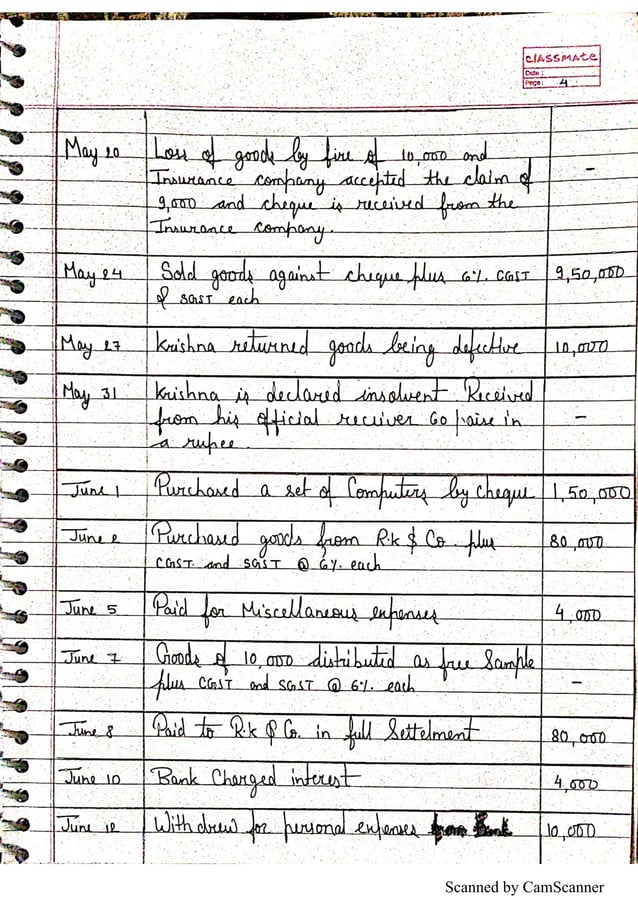 CLASSMATE
Date :
Page : 4
May 20 Loss of goods by fire of 10,000 and
Insurance company accepted the claim of
9,000 and cheque is received from the
Insurance company. -
May 24 Sold goods against cheque plus 6% CGST 9,50,000
& SGST each
May 27 Krishna returned goods being defective 10,000
May 31 Krishna is declared insolvent Received
from his official receiver 60 paise in
a rupee. -
June 1 Purchased a set of Computers by cheque 1,50,000
June 2 Purchased goods from R.k & Co. plus 80,000
CGST. and SGST @ 6%. each
June 5 Paid for Miscellaneous expenses 4,000
June 7 Goods of 10,000 distributed as free Sample
plus CGST and SGST @ 6%. each -
June 8 Paid to R.k & Co. in full Settelment 80,000
June 10 Bank Charged interest 4,000
June 12 With drew for personal expenses 10,000
Scanned by CamScanner